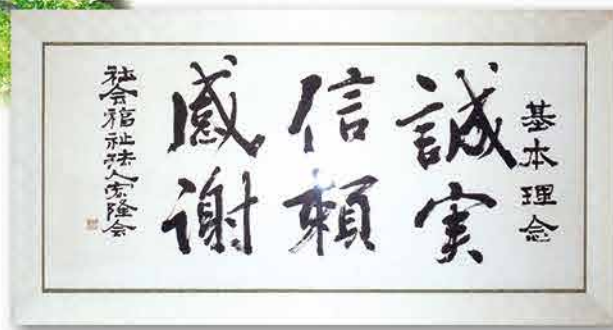 基本理念
誠実
信頼
感謝
社会福祉法人宏隆会